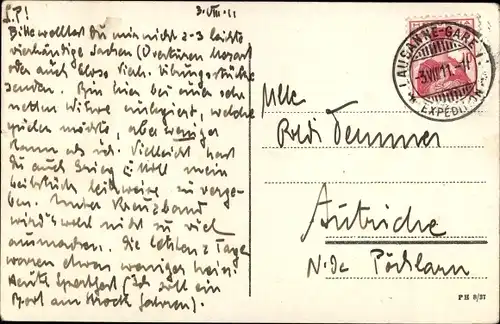 L.P! 3.VIII.11
Bitte wolltest Du mir nicht 2-3 leichte
vierhändige Sachen (Ouvertüren Mozart
oder auch bloss Übungsstücke
senden. Bin hier bei einer sehr
netten Witwe, welche
spielen möchte, aber weniger
kann als ich. Vielleicht hast
Du auch Grieg mein
leihweise zu verge-
ben. Unter Kreuzband
wird's wohl nicht zu viel
ausmachen. Die letzten 2 Tage
waren etwas weniger heiss.
Heute (Ich will ein
am fahren).
LAUSANNE-GARE
3.VIII.11.-11
EXPÉDITION
Mlle
Autriche
N.Oe Pöchlarn
PH 8/37